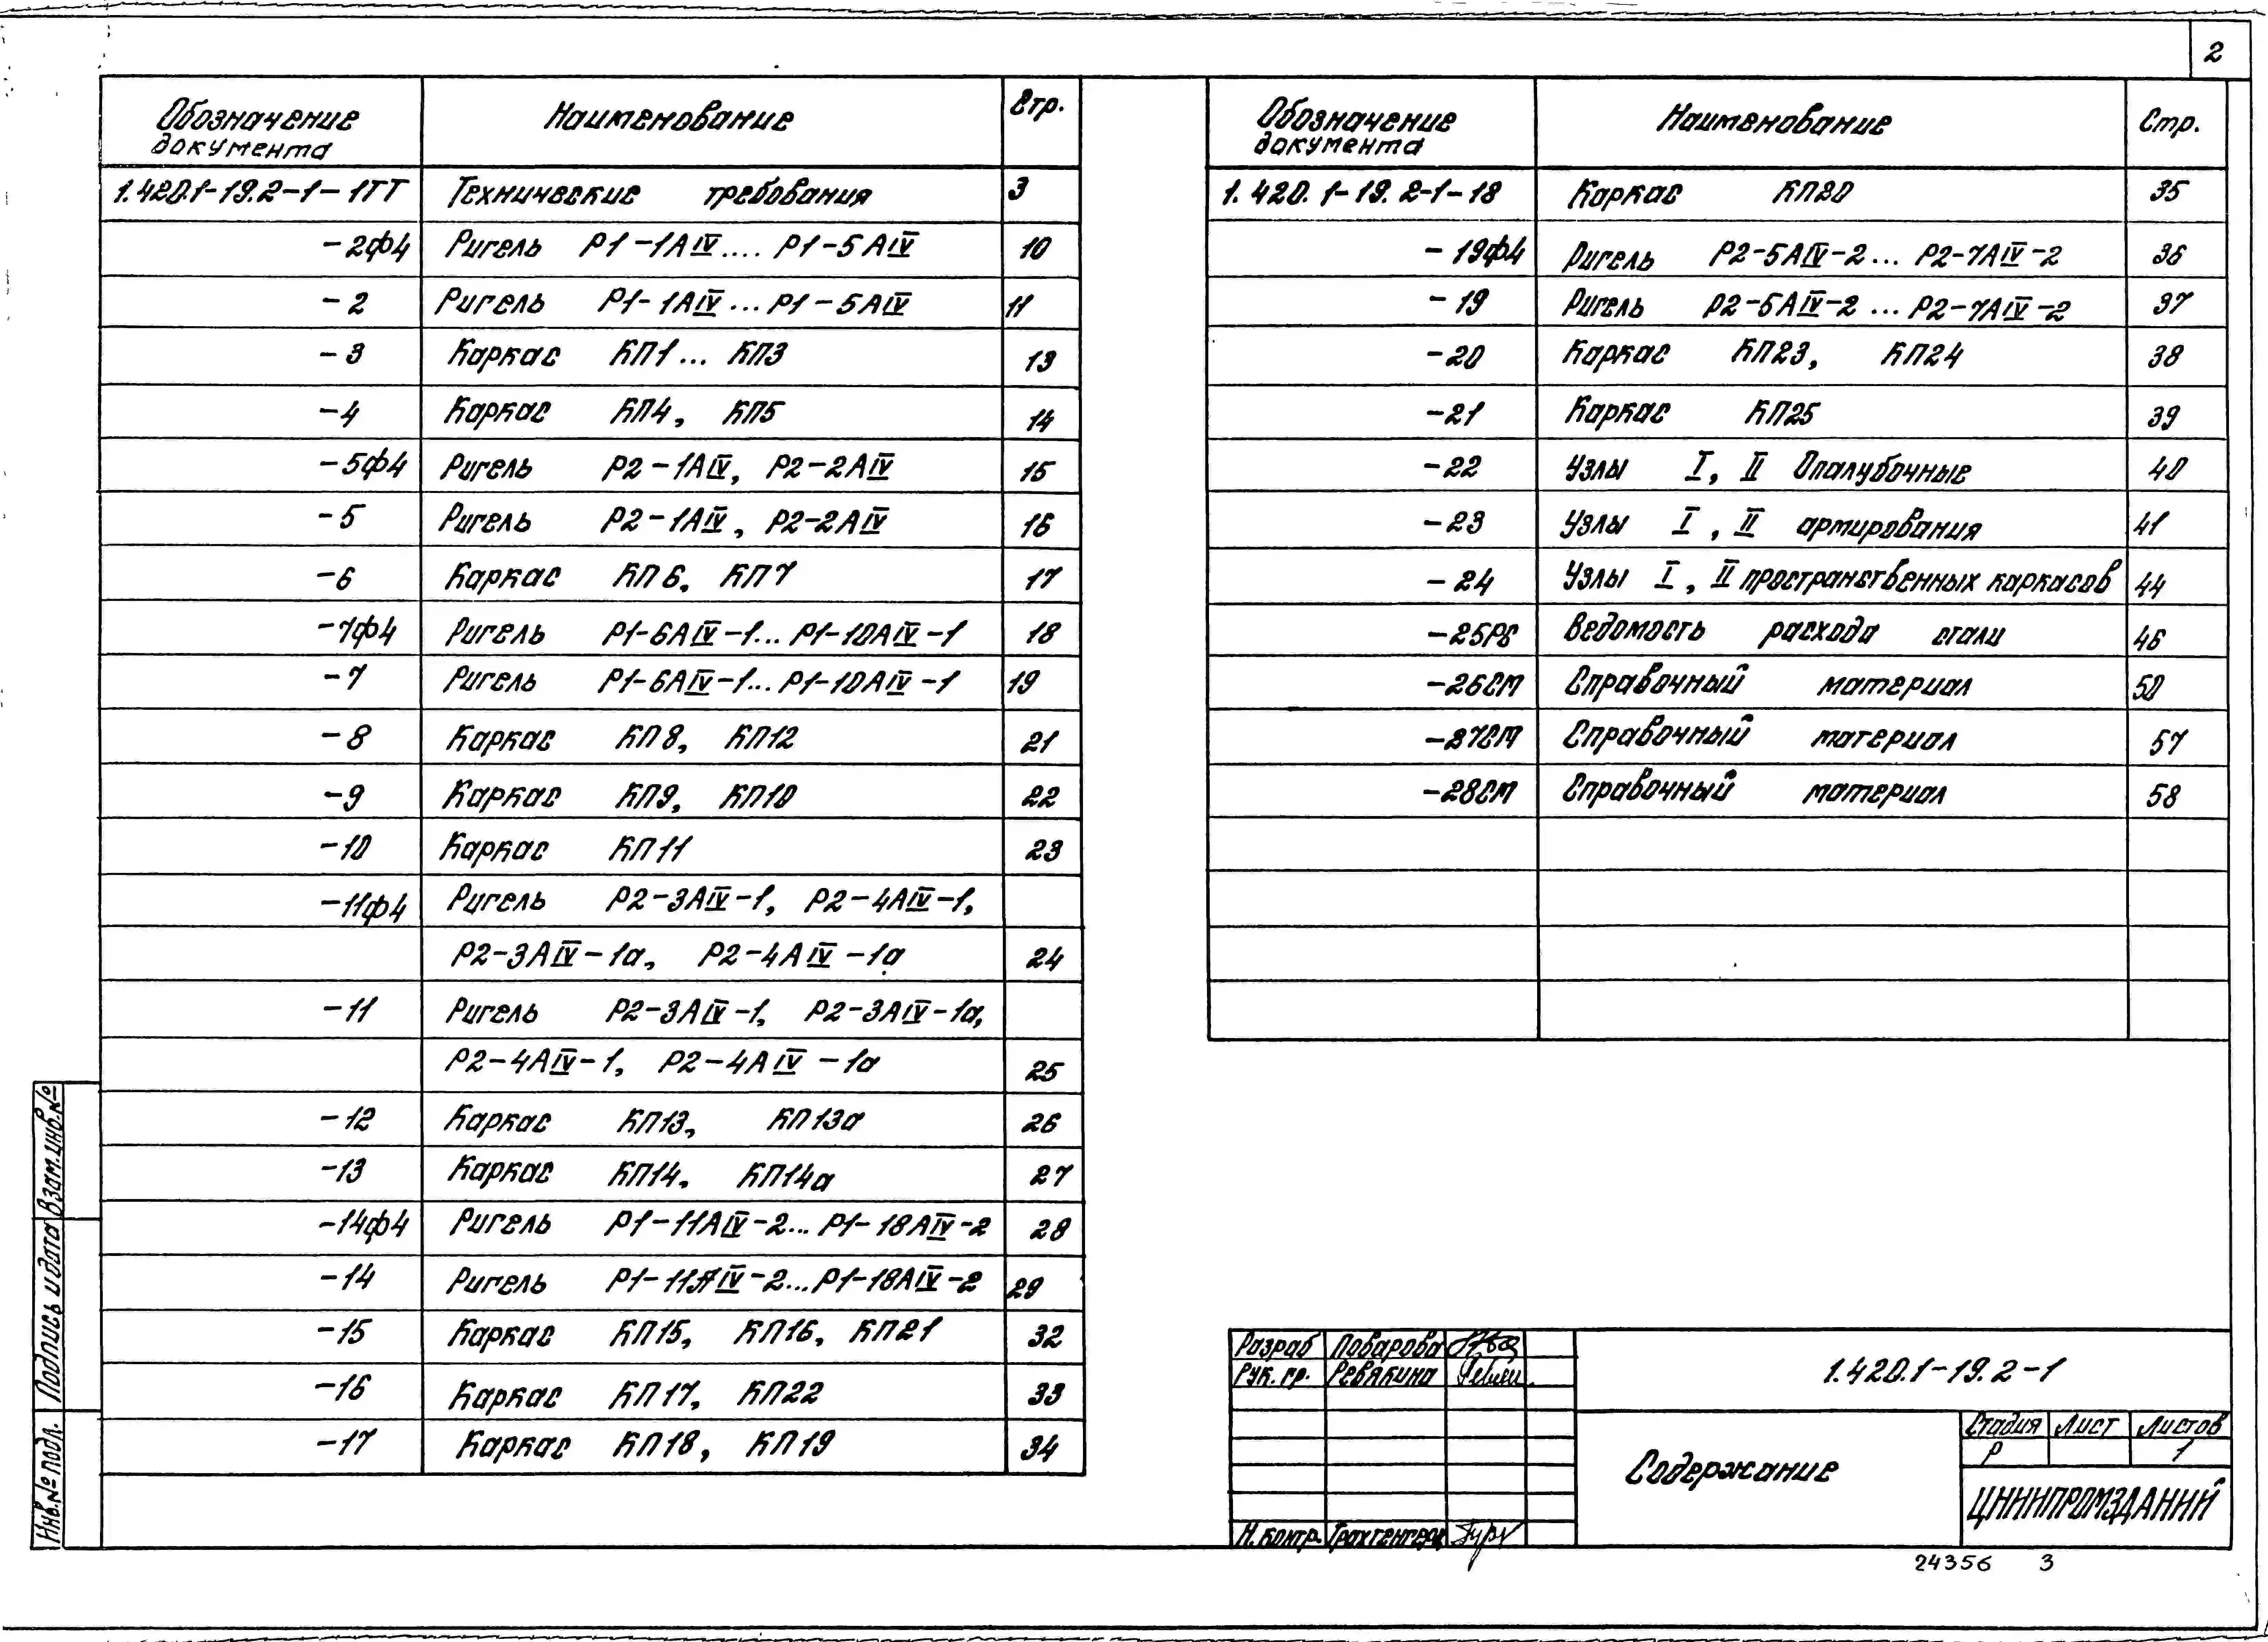 2
Обозначение документа Наименование Стр.
1.420.1-19.2-1-1ТТ Технические требования 3
-2ф4 Ригель Р1-1АIV.... Р1-5АIV 10
-2 Ригель Р1-1АIV...Р1-5АIV 11
-3 Каркас КП1... КП3 13
-4 Каркас КП4, КП5 14
-5ф4 Ригель Р2-1АIV, Р2-2АIV 15
-5 Ригель Р2-1АIV, Р2-2АIV 16
-6 Каркас КП6, КП7 17
-7ф4 Ригель Р1-6АIV-1... Р1-10АIV-1 18
-7 Ригель Р1-6АIV-1... Р1-10АIV-1 19
-8 Каркас КП8, КП12 21
-9 Каркас КП9, КП10 22
-10 Каркас КП11 23
-11ф4 Ригель Р2-3АIV-1, Р2-4АIV-1,
Р2-3АIV-1а, Р2-4АIV-1а 24
-11 Ригель Р2-3АIV-1, Р2-3АIV-1а,
Р2-4АIV-1, Р2-4АIV-1а 25
-12 Каркас КП13, КП13а 26
-13 Каркас КП14, КП14а 27
-14ф4 Ригель Р1-11АIV-2... Р1-18АIV-2 28
-14 Ригель Р1-11АIV-2...Р1-18АIV-2 29
-15 Каркас КП15, КП16, КП21 32
-16 Каркас КП17, КП22 33
-17 Каркас КП18, КП19 34
Обозначение документа Наименование Стр.
1.420.1-19.2-1-18 Каркас КП20 35
-19ф4 Ригель Р2-5АIV-2... Р2-7АIV-2 36
-19 Ригель Р2-5АIV-2 ... Р2-7АIV-2 37
-20 Каркас КП23, КП24 38
-21 Каркас КП25 39
-22 Узлы I, II Опалубочные 40
-23 Узлы I, II армирования 41
-24 Узлы I, II пространственных каркасов 44
-25РС Ведомость расхода стали 46
-26СМ Справочный материал 50
-27СМ Справочный материал 57
-28СМ Справочный материал 58
Взам.инв.№
Подпись и дата
Инв.№ подл.
Разраб Поварова
Рук. гр. Ревякина
Н.контр. Трахтенгерц
1.420.1-19.2-1
Содержание
Стадия Лист Листов
Р 1
ЦНИИПРОМЗДАНИЙ
24356 3